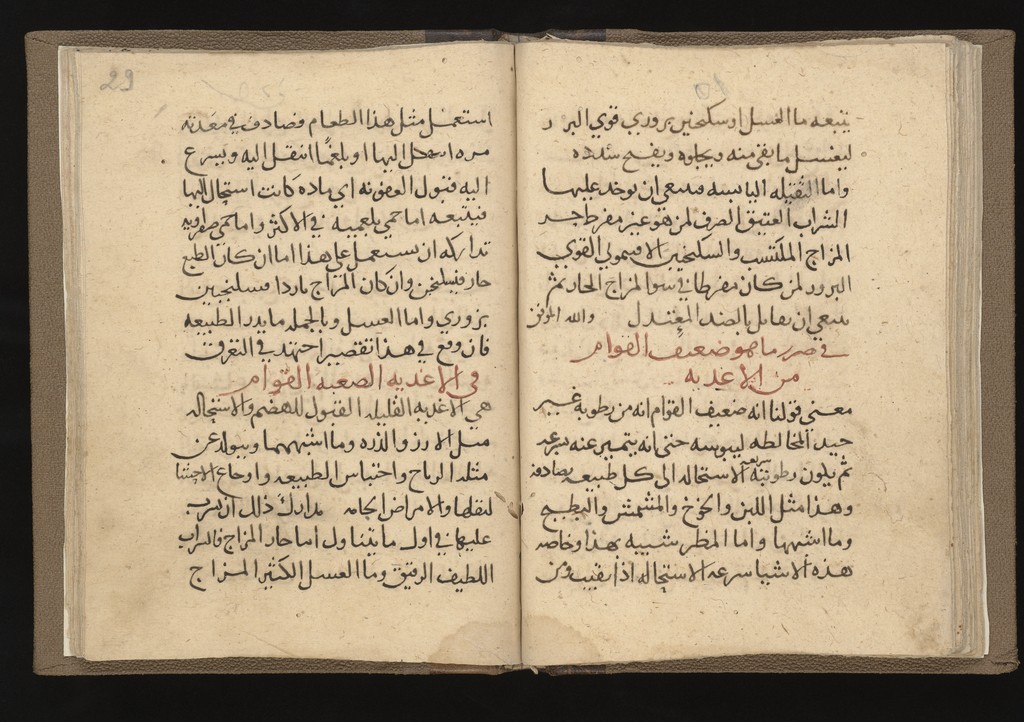 يتبعه ما العسل او سكنجبين بزوري قوي البزور
ليغسل ما بقي منه ويجلوه ويفتح سدده
واما الثقيله اليابسه فينبغي ان يوخذ عليها
الشراب العتيق الصرف لمن هو غير مفرط حر
المزاج المكتسب والسكنجبين القوي
البزور لمن كان مفرطا في سوا المزاج الحار ثم
ينبغي ان يقابل بالضد المعتدل والله الموفق
في ضرر ما هو ضعيف القوام
من الاغذيه
معنى قولنا انه ضعيف القوام انه من رطوبه غير
جيد المخالطه ليبوسه حتى انه يتميز عنه بسرعه
ثم يكون رطوبته سريعه الاستحاله الى كل طبيعه يصادفه
وهذا مثل اللبن والخوخ والمشمش والبطيخ
وما اشبهها واما المطر شبيه بهذا وخاصه
هذه الاشيا سرعه الاستحاله اذا بقيت ومن
29
استعمل مثل هذا الطعام فصادف في معدته
مره استحال اليها او بلغما انتقل اليه ويسرع
اليه قبول العفونه اي ماده كانت استحال اليها
فيتبعه اما حمى بلغميه في الاكثر واما حمى صفراويه
تداركه ان يستعمل على هذا اما ان كان الطبع
حار فسكنجبين وان كان المزاج باردا فسكنجبين
بزوري واما العسل وبالجمله ما يدر الطبيعه
فان وقع في هذا تقصير اجتهد في التعرق
في الاغذيه الصعبه القوام
هي الاغذيه القليله القبول للهضم والاستحاله
مثل الارز والذره وما اشبههما ويتولد عن
مثله الرياح واحتباس الطبيعه واوجاع الاحشا
لثقلها والامراض الجامه تدارك ذلك ان يشرب
عليها في اول ما يتناول اما حار المزاج فالشراب
اللطيف الرقيق وما العسل الكثير المزاج